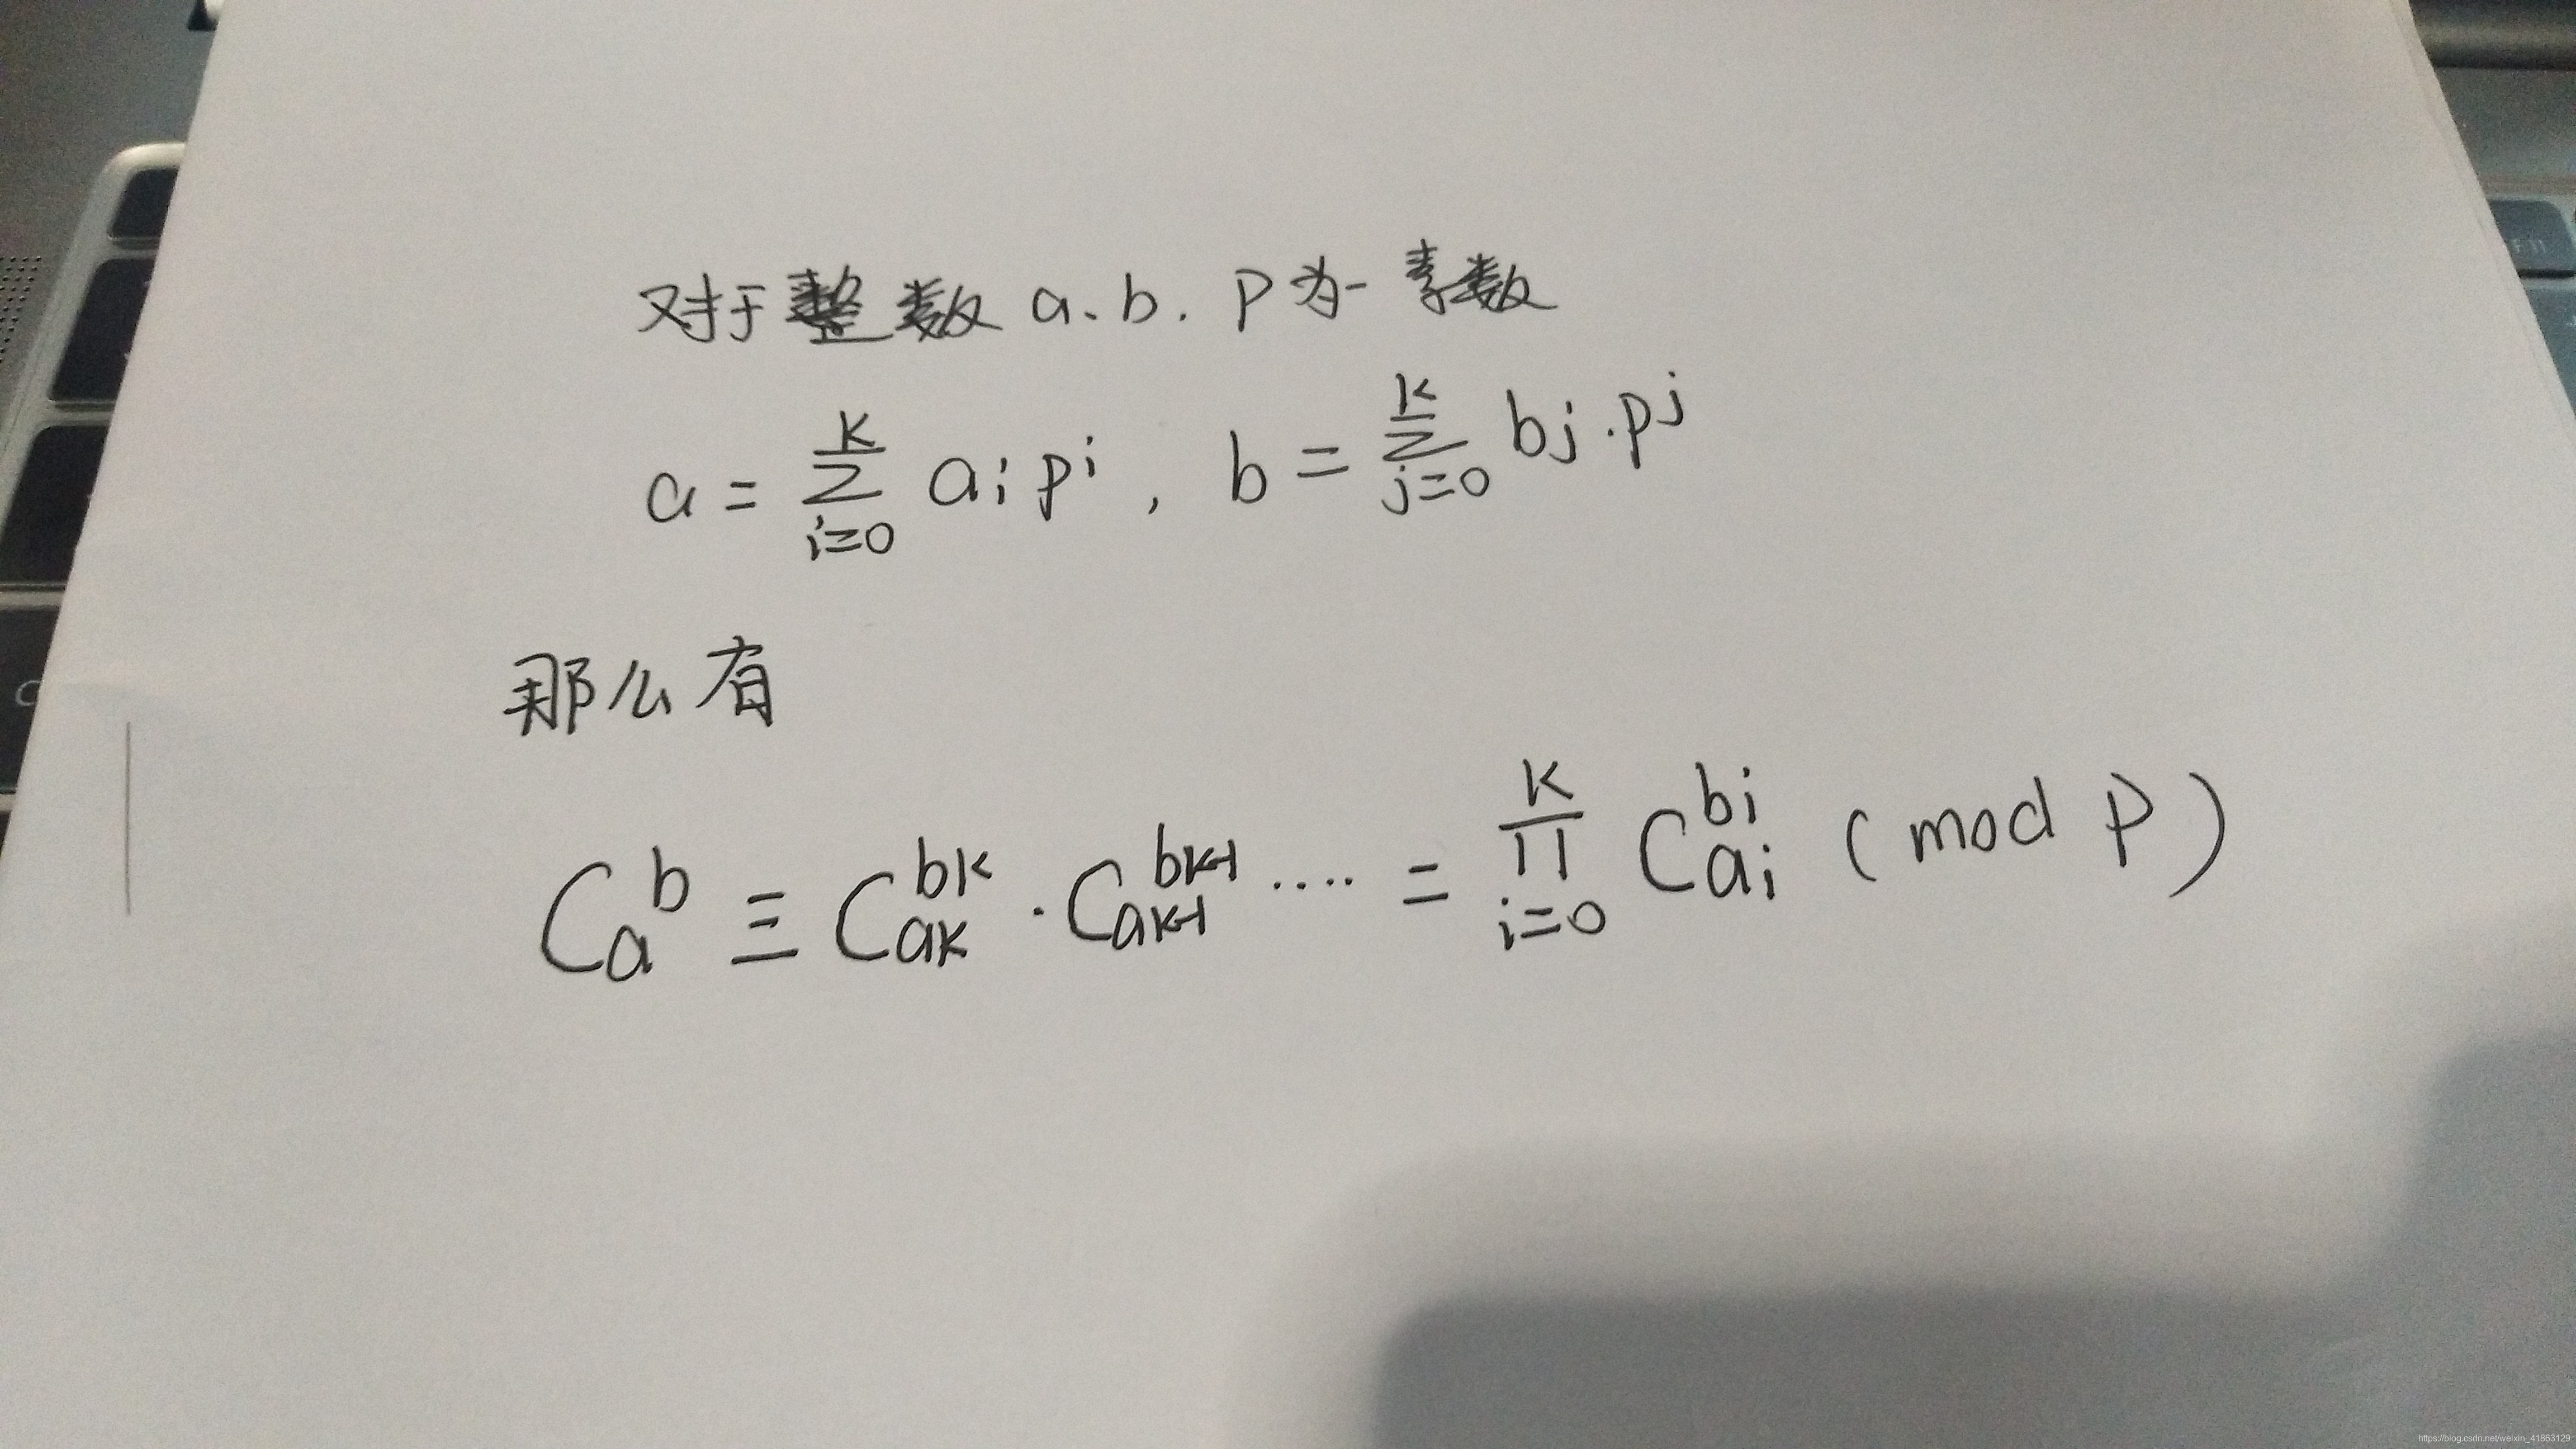 对于整数 a、b. p为一素数
a = \sum_{i=0}^{k} a_i p^i , b = \sum_{j=0}^{k} b_j · p^j
那么有
C_a^b ≡ C_{a_k}^{b_k} · C_{a_{k-1}}^{b_{k-1}} .... = \prod_{i=0}^{k} C_{a_i}^{b_i} ( mod p )
https://blog.csdn.net/weixin_41863129